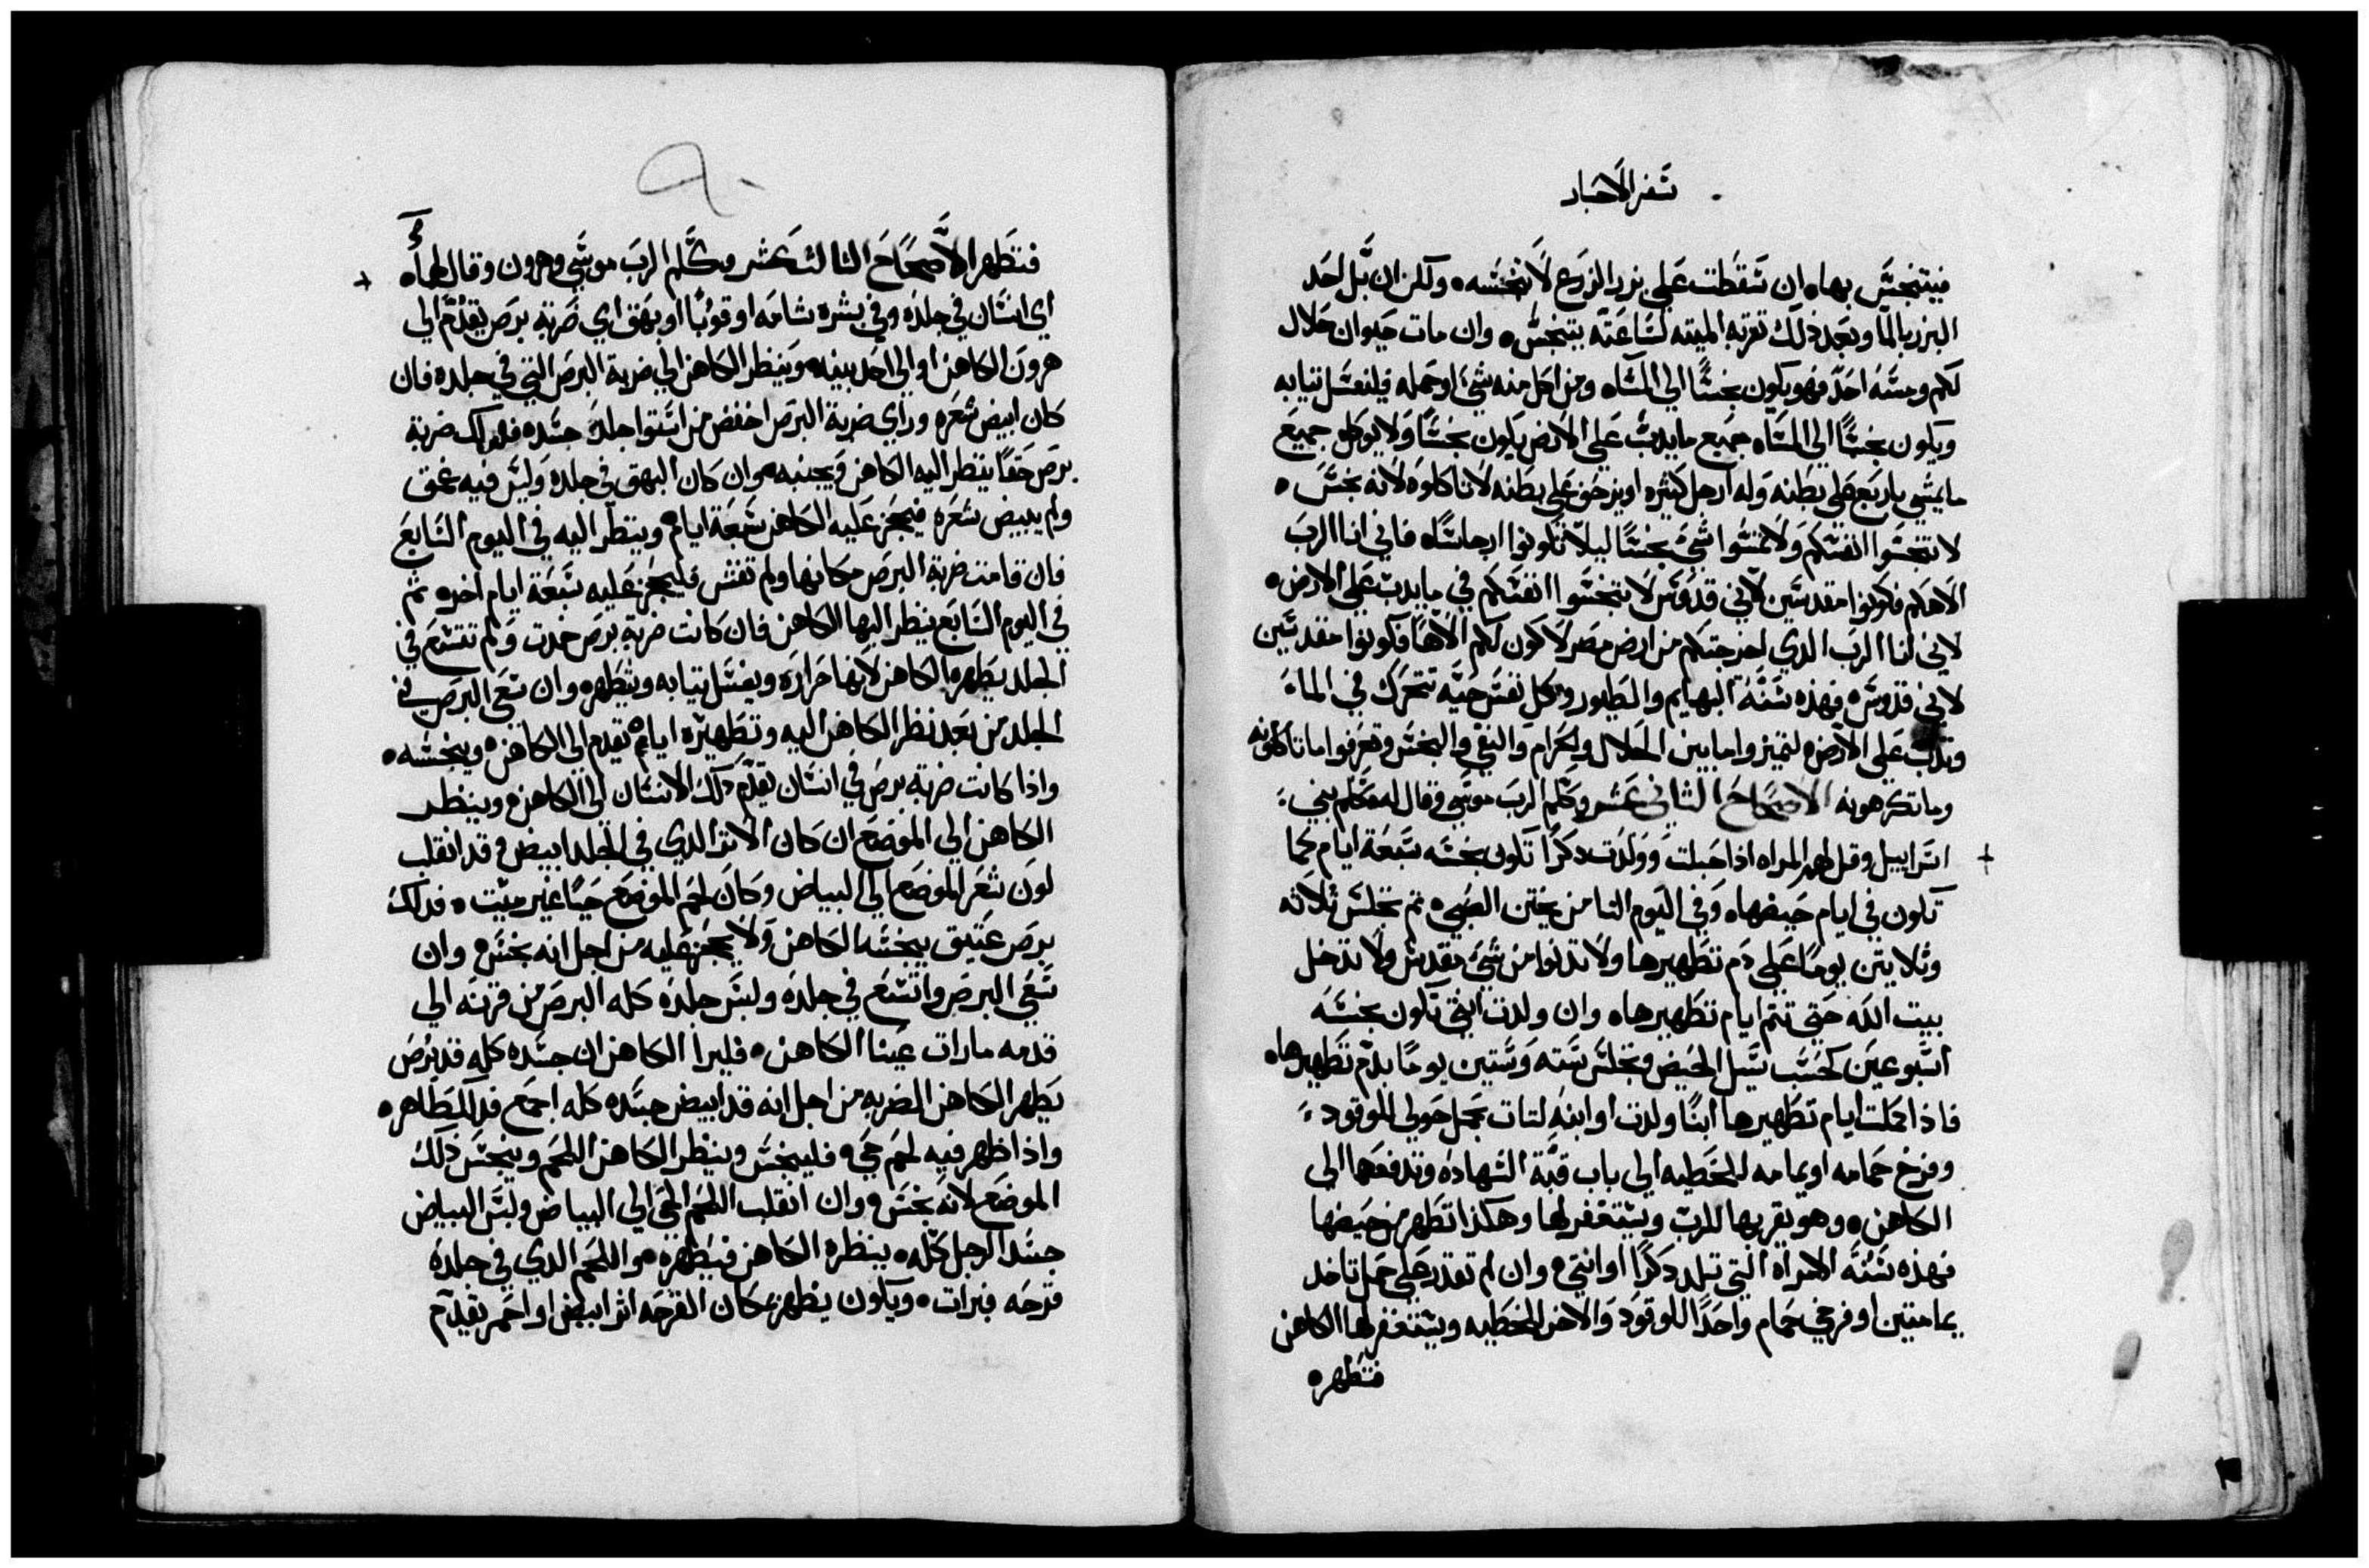 سفر الاحبار
فيتنجس بها ٥ ان سقطت على بزر الزرع لا تنجسه ٥ ولكن ان بل احد
البزر بالما وبعد ذلك تقربه الميته لساعته يتنجس ٥ وان مات حيوان حلال
لكم ومسه احد فهو يكون نجسًا الي المسا ٥ ومن اكل منه شي او حمله فليغسل ثيابه
ويكون نجسًا الي المسا ٥ جميع ما يدب علي الارض يكون نجسًا ولا يوكل جميع
ما يمشي باربع علي بطنه وله ارجل كثيره او يزحف علي بطنه لا تاكلوه لانه نجس ٥
لا تنجسوا انفسكم ولا تمسوا شي نجسًا ليلا تكونوا ارجاسًا ٥ فاني انا الرب
الاهكم فكونوا مقدسين لاني قدوس لا تنجسوا انفسكم في ما يدب علي الارض ٥
لاني انا الرب الدي اخرجتكم من ارض مصر لاكون لكم الاهًا فكونوا مقدسين
لاني قدوس ٥ فهذه سنة البهايم والطيور وكل نفس حيه تتحرك في الماء
وتدب علي الارض ٥ لتميزوا ما بين الحلال والحرام والنقي والنجس وتعرفوا ما تاكلونه
وما تكرهونه الاصحاح الثاني عشر وكلم الرب موسي وقال له كلم بني
اسراييل وقل لهم المراه اذا حبلت وولدت دكرًا تكون نجسه سبعة ايام كما
تكون في ايام حيضها ٥ وفي اليوم الثامن يختن الصبي ٥ ثم تجلس ثلاثه
وثلاثين يومًا علي دم تطهيرها ولا تدنوا من شي مقدس ولا تدخل
بيت الله حتي تتم ايام تطهيرها ٥ وان ولدت انثي تكون نجسه
اسبوعين كحسب سيل الحيض وتجلس سته وستين يومًا بدم تطهيرها ٥
فاذا كملت ايام تطهيرها ابنًا ولدت او ابنه لتات بحمل حولي للوقود
وفرخ حمامه او يمامه للخطيه الي باب قبة الشهاده وتدفعها الي
الكاهن ٥ وهو يقربها للرب ويستغفر لها وهكذا تطهر من حيضها
فهذه سنة الامراه التي تلد دكرًا او انثي ٥ وان لم تقدر علي حمل تاخد
يمامتين او فرخي حمام واحدًا للوقود والاخر للخطيه ويستغفر لها الكاهن
فتطهر ٥
فتطهر الاصحاح الثالث عشر وكلم الرب موسي وهرون وقال لهما ٥
اي انسان في جلده وفي بشره شامه او قوبًا او بهق اي ضربة برص يقدم الي
هرون الكاهن او الي احد بنيه ٥ وينظر الكاهن الي ضربة البرص التي في جلده فان
كان ابيض شعره وراي ضربة البرص اخفض من استوا جلد جسده فذلك ضربة
برص حقًا ينظر اليه الكاهن وينجسه ٥ وان كان البهق في جلده وليس فيه عمق
ولم يبيض شعره فيحجز عليه الكاهن سبعة ايام ٥ وينظر اليه في اليوم السابع
فان قامت ضربة البرص مكانها ولم تفش فليحجز عليه سبعة ايام اخر ٥ ثم
في اليوم السابع ينظر اليها الكاهن فان كانت ضربة برص خدت ولم تتسع في
الجلد يطهره الكاهن لانها حراره ويغسل ثيابه ويتطهر ٥ وان سعي البرص في
الجلد من بعد نظر الكاهن اليه وتطهيره ايام ٥ تقدم الي الكاهن ٥ وينجسه ٥
واذا كانت ضربة برص في انسان يقدم ذلك الانسان الي الكاهن ٥ وينظر
الكاهن الي الموضع ان كان الاثر الدي في الجلد ابيض وقد انقلب
لون شعر الموضع الي البياض وكان لحم الموضع حيًا غير ميت ٥ فدلك
برص عتيق ينجسه الكاهن ولا يحجز عليه من اجل انه نجس ٥ وان
سعي البرص واتسع في جلده ولبس جلده كله البرص من قرنه الي
قدمه ما رات عينا الكاهن ٥ فليرا الكاهن ان جسده كله قد برص
يطهر الكاهن الضربه من اجل انه قد ابيض جسده كله اجمع فدلك طاهر ٥
واذا ظهر فيه لحم حي ٥ فلينجس وينظر الكاهن اللحم وينجس ذلك
الموضع لانه نجس ٥ وان انقلب اللحم الحي الي البياض ولبس البياض
جسد الرجل كله ٥ ينظره الكاهن فيطهره ٥ واللحم الدي في جلده
قرحه فبرات ٥ ويكون يظهر مكان القرحه اثر ابيض او احمر يقدم